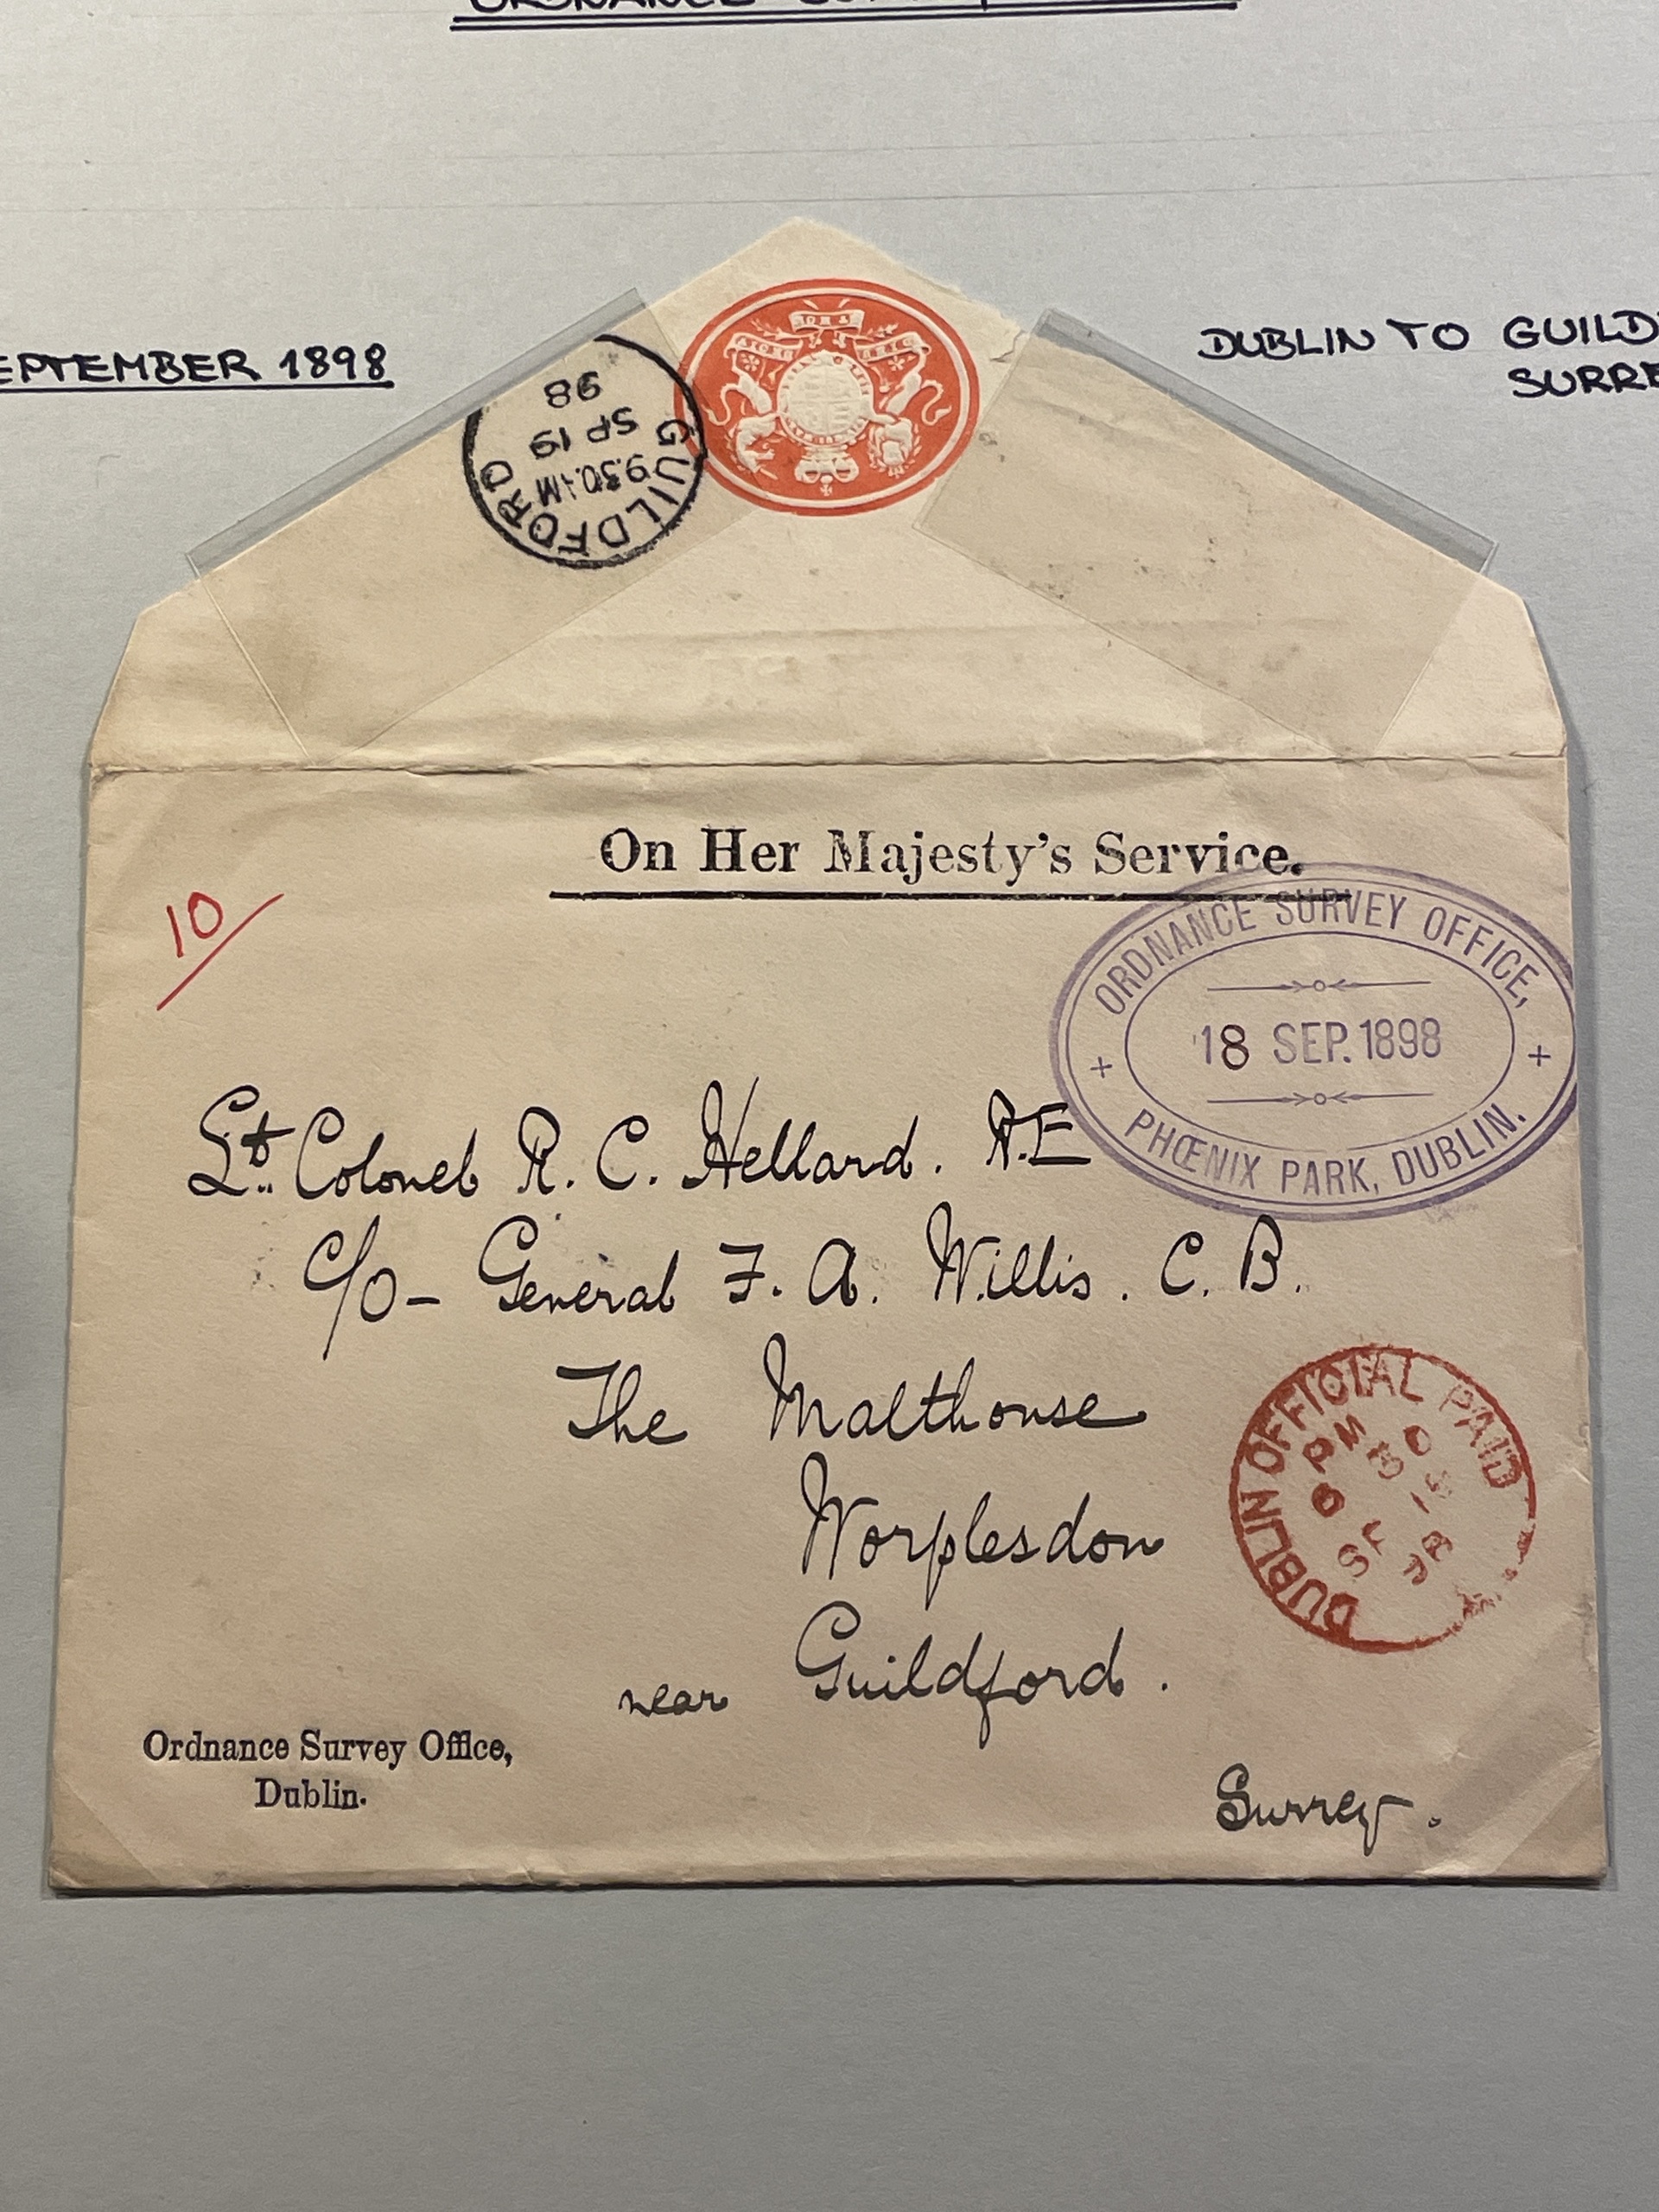 SEPTEMBER 1898
DUBLIN TO
98
SP 19
9.30 AM
GUILDFORD
On Her Majesty's Service.
10/
ORDNANCE SURVEY OFFICE,
18 SEP. 1898
PHŒNIX PARK, DUBLIN.
Lt. Colonel R. C. Hellard. R.E
c/o - General F. A. Willis. C. B.
The Malthouse
Worplesdon
near Guildford.
Surrey.
DUBLIN OFFICIAL PAID
Ordnance Survey Office,
Dublin.